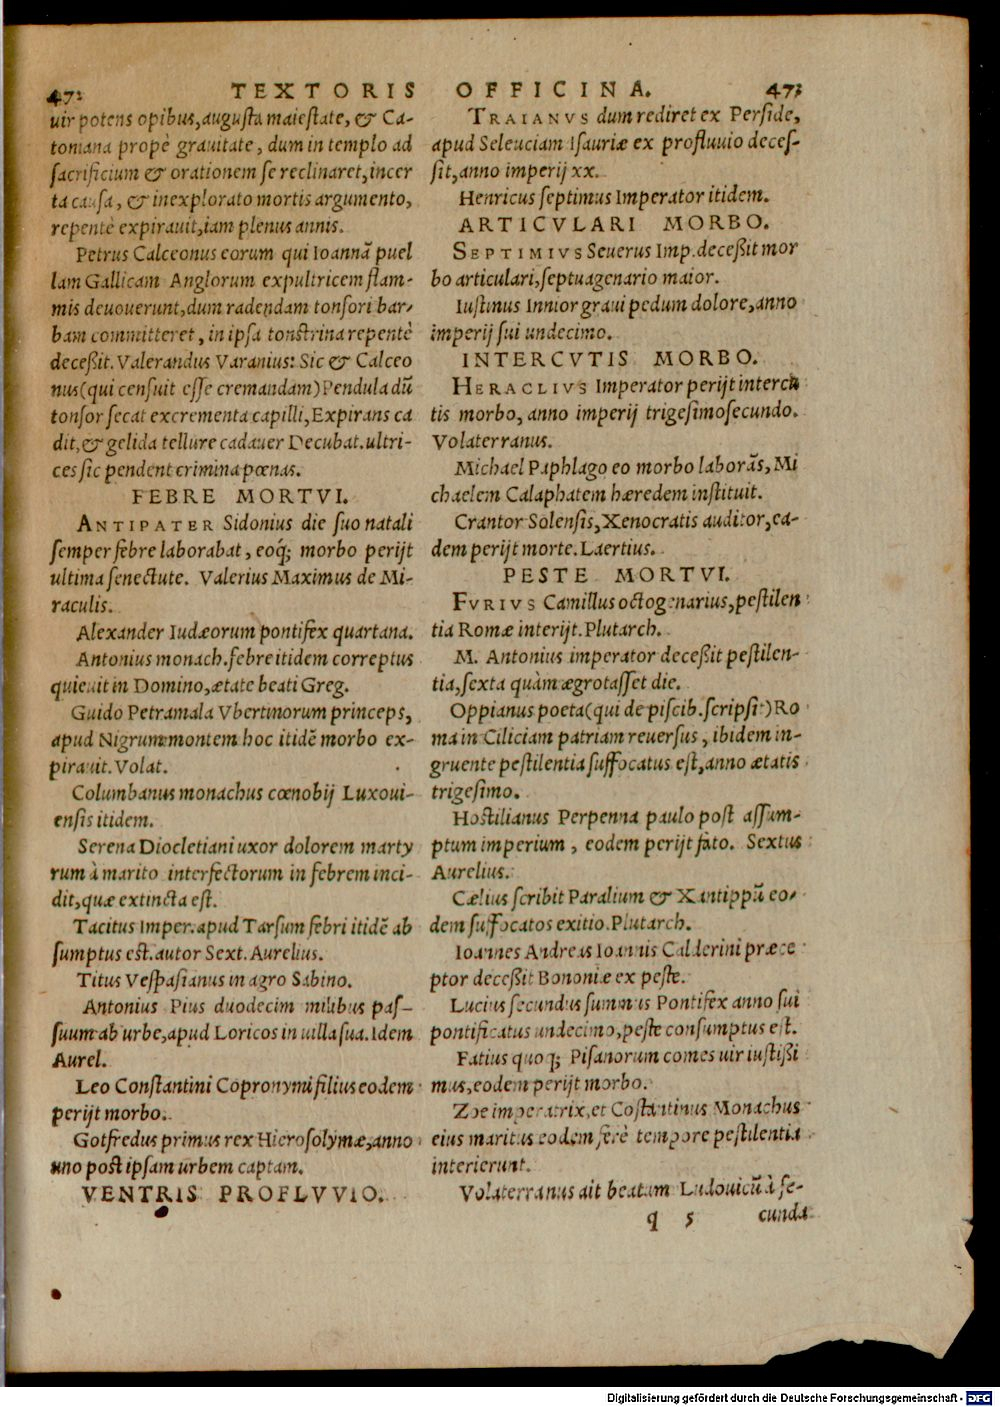 472 TEXTORIS OFFICINA. 473
uir potens opibus, augusta maiestate, & Ca-
toniana propè grauitate, dum in templo ad
sacrificium & orationem se reclinaret, incer
ta causa, & inexplorato mortis argumento,
repentè expirauit, iam plenus annis.
Petrus Calceonus eorum qui Ioannã puel
lam Gallicam Anglorum expultricem flam-
mis deuouerunt, dum radendam tonsori bar-
bam committeret, in ipsa tonstrina repentè
decessit. Valerandus Varanius: Sic & Calceo
nus (qui censuit esse cremandam) Pendula dũ
tonsor secat excrementa capilli, Expirans ca
dit, & gelida tellure cadauer Decubat. ultri-
ces sic pendent crimina pœnas.
FEBRE MORTVI.
ANTIPATER Sidonius die suo natali
semper febre laborabat, eoq́; morbo perijt
ultima senectute. Valerius Maximus de Mi-
raculis.
Alexander Iudæorum pontifex quartana.
Antonius monach. febre itidem correptus
quieuit in Domino, ætate beati Greg.
Guido Petramala Vbertinorum princeps,
apud Nigrum montem hoc itidẽ morbo ex-
pirauit. Volat.
Columbanus monachus cœnobij Luxoui-
ensis itidem.
Serena Diocletiani uxor dolorem marty
rum à marito interfectorum in febrem inci-
dit, quæ extincta est.
Tacitus Imper. apud Tarsum febri itidẽ ab
sumptus est. autor Sext. Aurelius.
Titus Vespasianus in agro Sabino.
Antonius Pius duodecim milibus pas-
suum ab urbe, apud Loricos in uilla sua. Idem
Aurel.
Leo Constantini Copronymi filius eodem
perijt morbo.
Gotfredus primus rex Hierosolymæ, anno
uno post ipsam urbem captam.
VENTRIS PROFLVVIO.
TRAIANVS dum rediret ex Perside,
apud Seleuciam Isauriæ ex profluuio deces-
sit, anno imperij xx.
Henricus septimus Imperator itidem.
ARTICVLARI MORBO.
SEPTIMIVS Seuerus Imp. decessit mor
bo articulari, septuagenario maior.
Iustinus Iunior graui pedum dolore, anno
imperij sui undecimo.
INTERCVTIS MORBO.
HERACLIVS Imperator perijt intercu
tis morbo, anno imperij trigesimosecundo.
Volaterranus.
Michael Paphlago eo morbo laborãs, Mi
chaelem Calaphatem hæredem instituit.
Crantor Solensis, Xenocratis auditor, ea-
dem perijt morte. Laertius.
PESTE MORTVI.
FVRIVS Camillus octogenarius, pestilen
tia Romæ interijt. Plutarch.
M. Antonius imperator decessit pestilen-
tia, sexta quàm ægrotasset die.
Oppianus poeta (qui de piscib. scripsit) Ro
ma in Ciliciam patriam reuersus, ibidem in-
gruente pestilentia suffocatus est, anno ætatis
trigesimo.
Hostilianus Perpenna paulo post assum-
ptum imperium, eodem perijt fato. Sextus
Aurelius.
Cælius scribit Paralium & Xantippũ eo-
dem suffocatos exitio. Plutarch.
Ioannes Andreas Ioannis Calderini præce
ptor decessit Bononiæ ex peste.
Lucius secundus summus Pontifex anno sui
pontificatus undecimo, peste consumptus est.
Fatius quoq; Pisanorum comes uir iustissi
mus, eodem perijt morbo.
Zoe imperatrix, et Cõstantinus Monachus
eius maritus eodem ferè tempore pestilentia
interierunt.
Volaterranus ait beatum Ludouicũ à se-
q 5 cunda
Digitalisierung gefördert durch die Deutsche Forschungsgemeinschaft - DFG